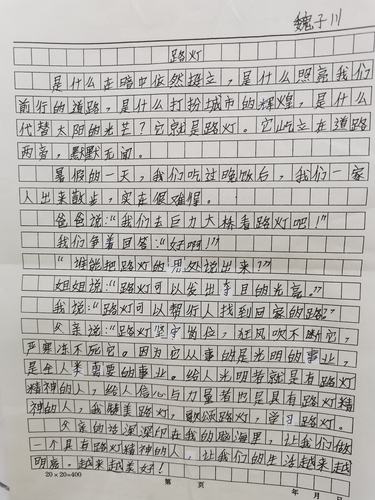 魏子川
路灯
是什么在暗中依然挺立，是什么照亮我们
前行的道路，是什么打扮城市的辉煌，是什么
代替太阳的光芒？它就是路灯。它屹立在道路
两旁，默默无闻。
暑假的一天，我们吃过晚饭后，我们一家
人出来散步，实在很难得。
爸爸说：“我们去巨力大桥看路灯吧！”
我们争着回答：“好啊！”
“谁能把路灯的用处说出来？”
姐姐说：“路灯可以发出夺目的光亮。”
我说：“路灯可以帮行人找到回家的路。”
父亲说：“路灯坚守岗位，狂风吹不断它，
严寒冻不死它。因为它从事的是光明的事业，
是全人类需要的事业。给人光明者就是有路灯
精神的人，给人信心与力量者也是具有路灯精
神的人，我赞美路灯，歌颂路灯，学习路灯。
父亲的话深深印在我的脑海里，让我们做
一个具有路灯精神的人，让我们的生活越来越
明亮。越来越美好！
20×20=400
第 页
年 月 日